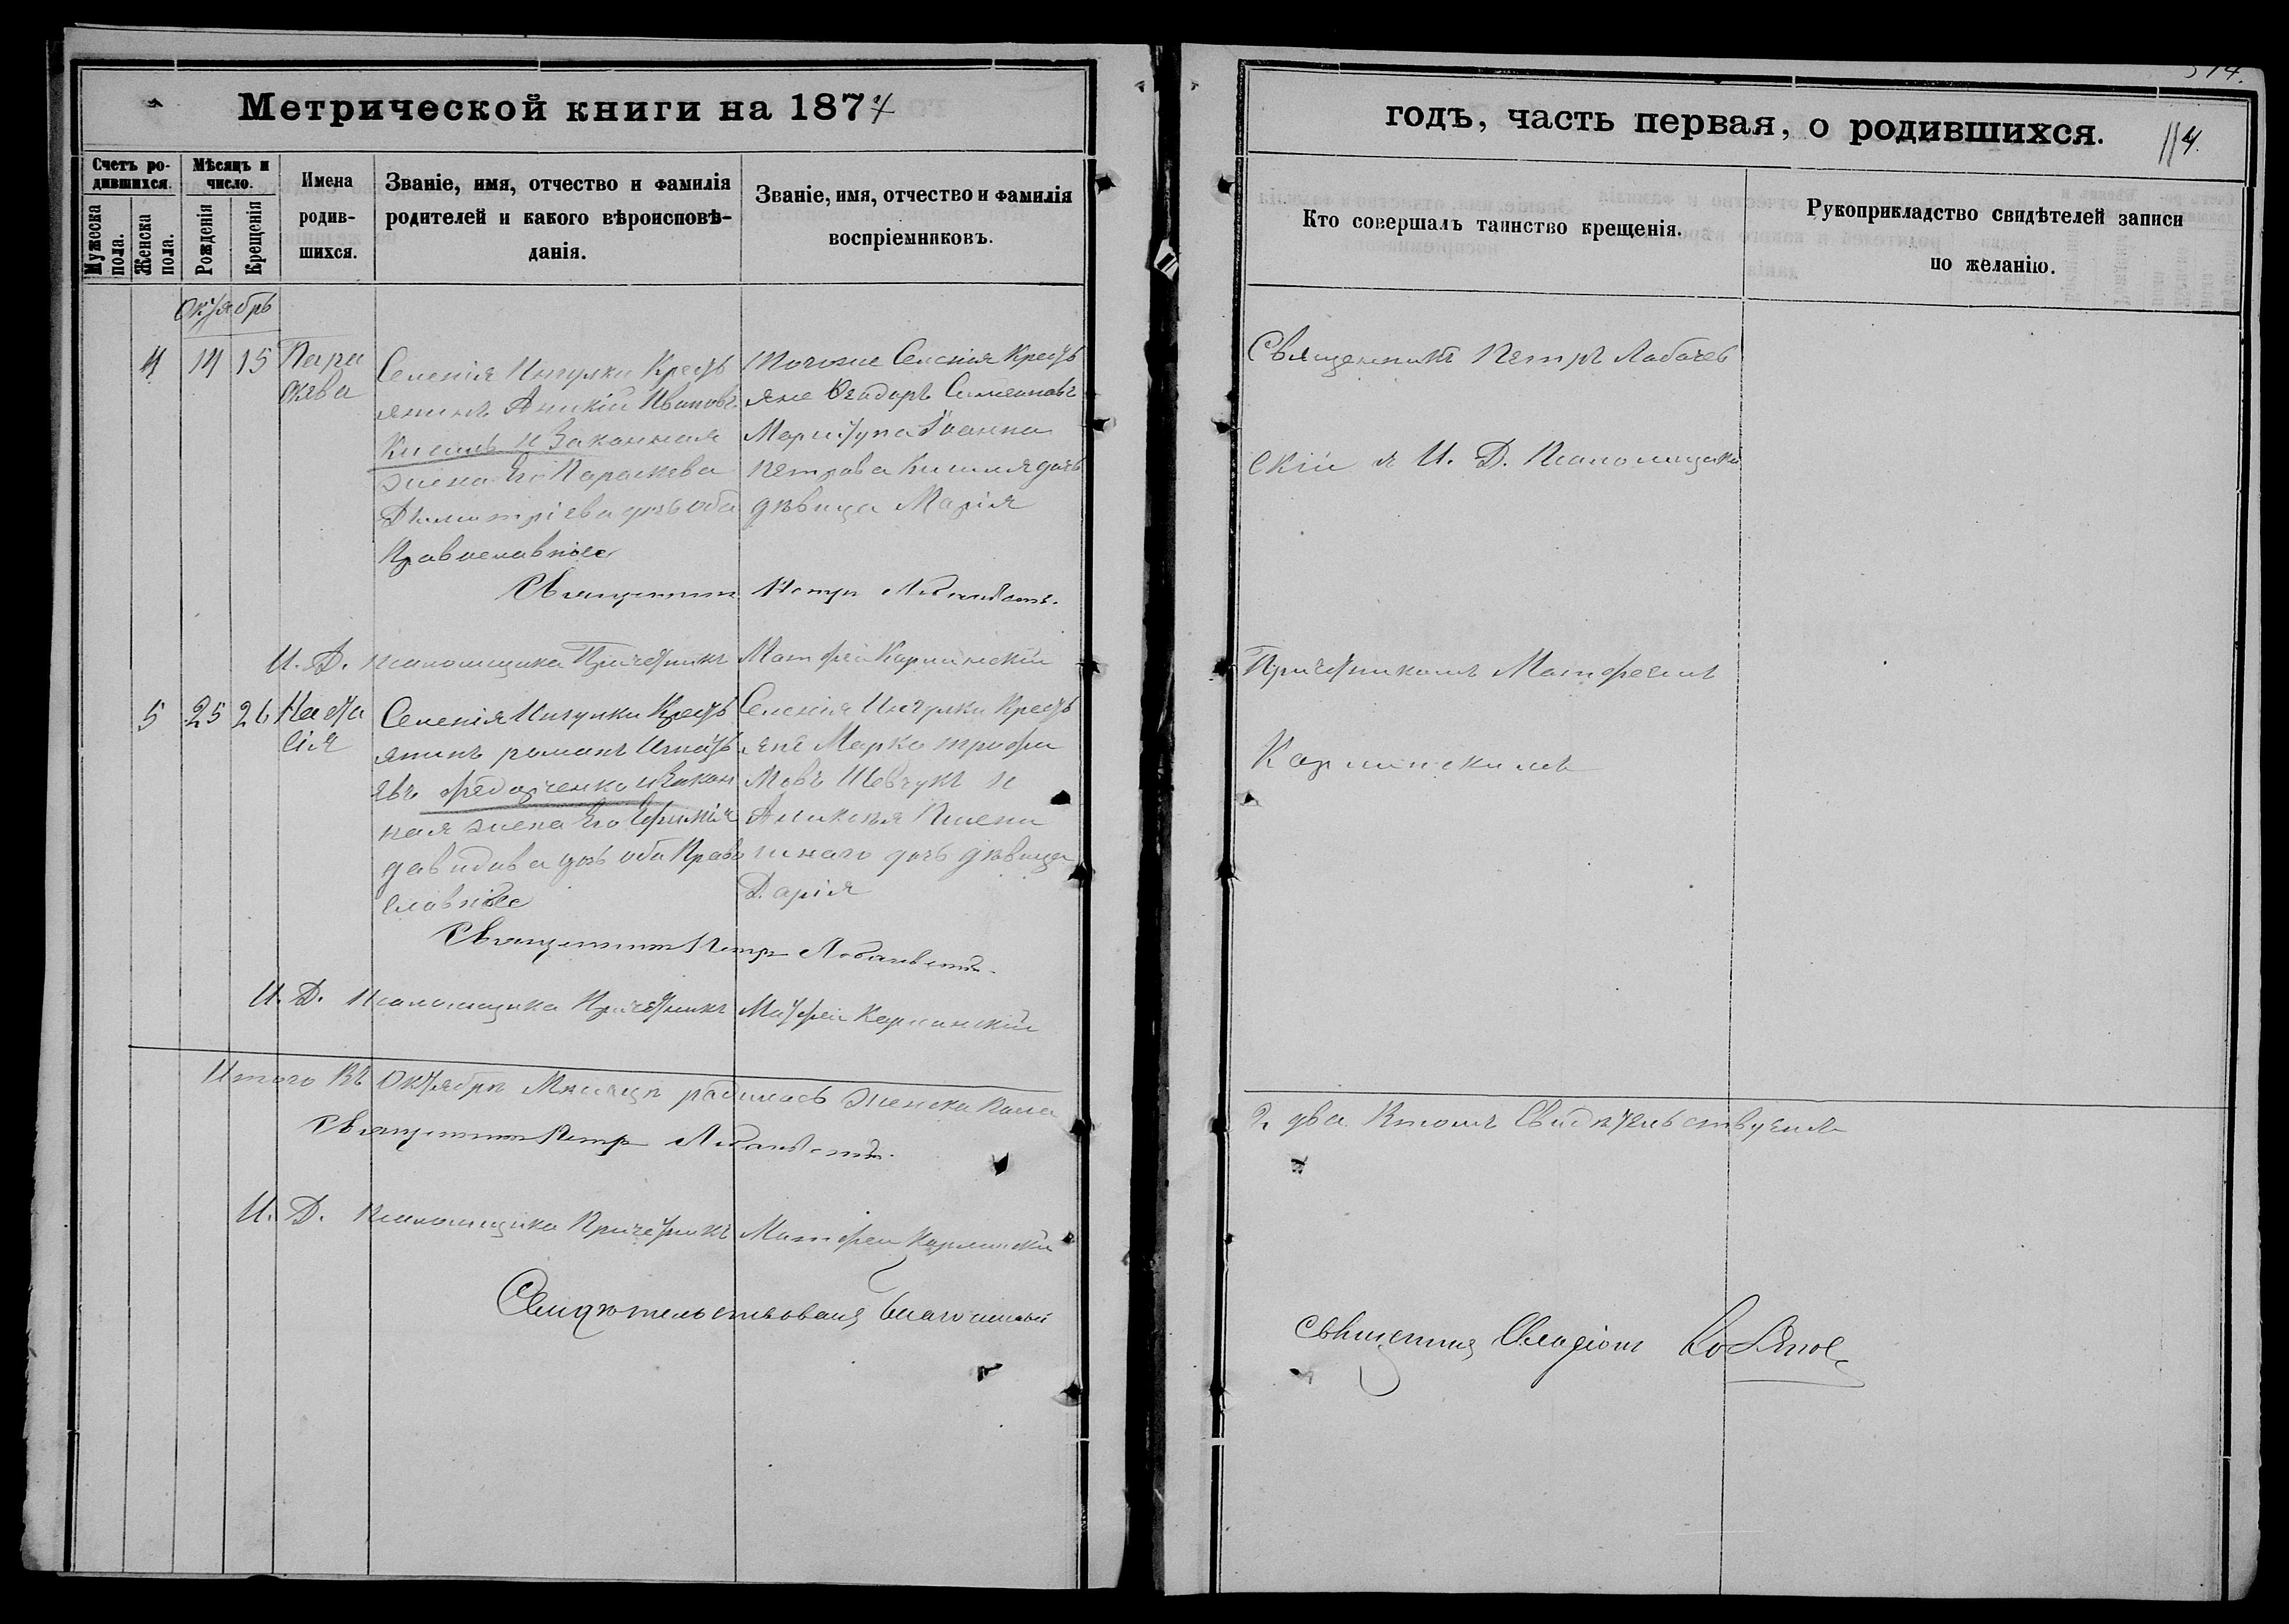 Метрической книги на 1874
Счетъ родившихся.
Мужеска пола.
Женска пола.
Мѣсяцъ и число.
Рожденія
Крещенія
Имена родившихся.
Званіе, имя, отчество и фамилія
родителей и какого вѣроисповѣ-
данія.
Званіе, имя, отчество и фамилія
воспріемниковъ.
Октябрь
4 14 15 Пара
скева
Селенія Ингулки Крест
янинъ Аникій Ивановъ
Кисиль и Законная
жена Его Параскева
Димитріева дочь оба
Православное
Тогоже Селенія Крест
яне Феодоръ Симеоновъ
Петрова Кисиля дочь
дѣвица Марія
Священникъ Петръ
И. Д. Псаломщика Причетникъ Матфей Карпинскій
5 25 26 Ната
лія
Селенія Ингулки Крест
янинъ романъ Игнать
евъ федорченко и Закон
ная жена Его Ефимія
давидова дочь оба Право
славное
Селенія Ингулки Крест
яне Марко трофи
мовъ Шевчукъ и
дочь дѣвица
Дарія
Священникъ Петръ
И. Д. Псаломщика Причетникъ Матфей Карпинскій
Итого Въ Октябрѣ Мѣсяцѣ родилось женска Пола
Священникъ Петръ
И. Д. Псаломщика Причетникъ Матфей Карпинскій
Свидѣтельствовалъ Благочинный
годъ, часть первая, о родившихся.
114.
Кто совершалъ таинство крещенія.
Рукоприкладство свидѣтелей записи
по желанію.
Священникъ Петръ Лобачев
скій и И. Д. Псаломщика
Причетникомъ Матфеемъ
Карпинскимъ
2 два Втомъ Свидѣтельствуемъ
священникъ